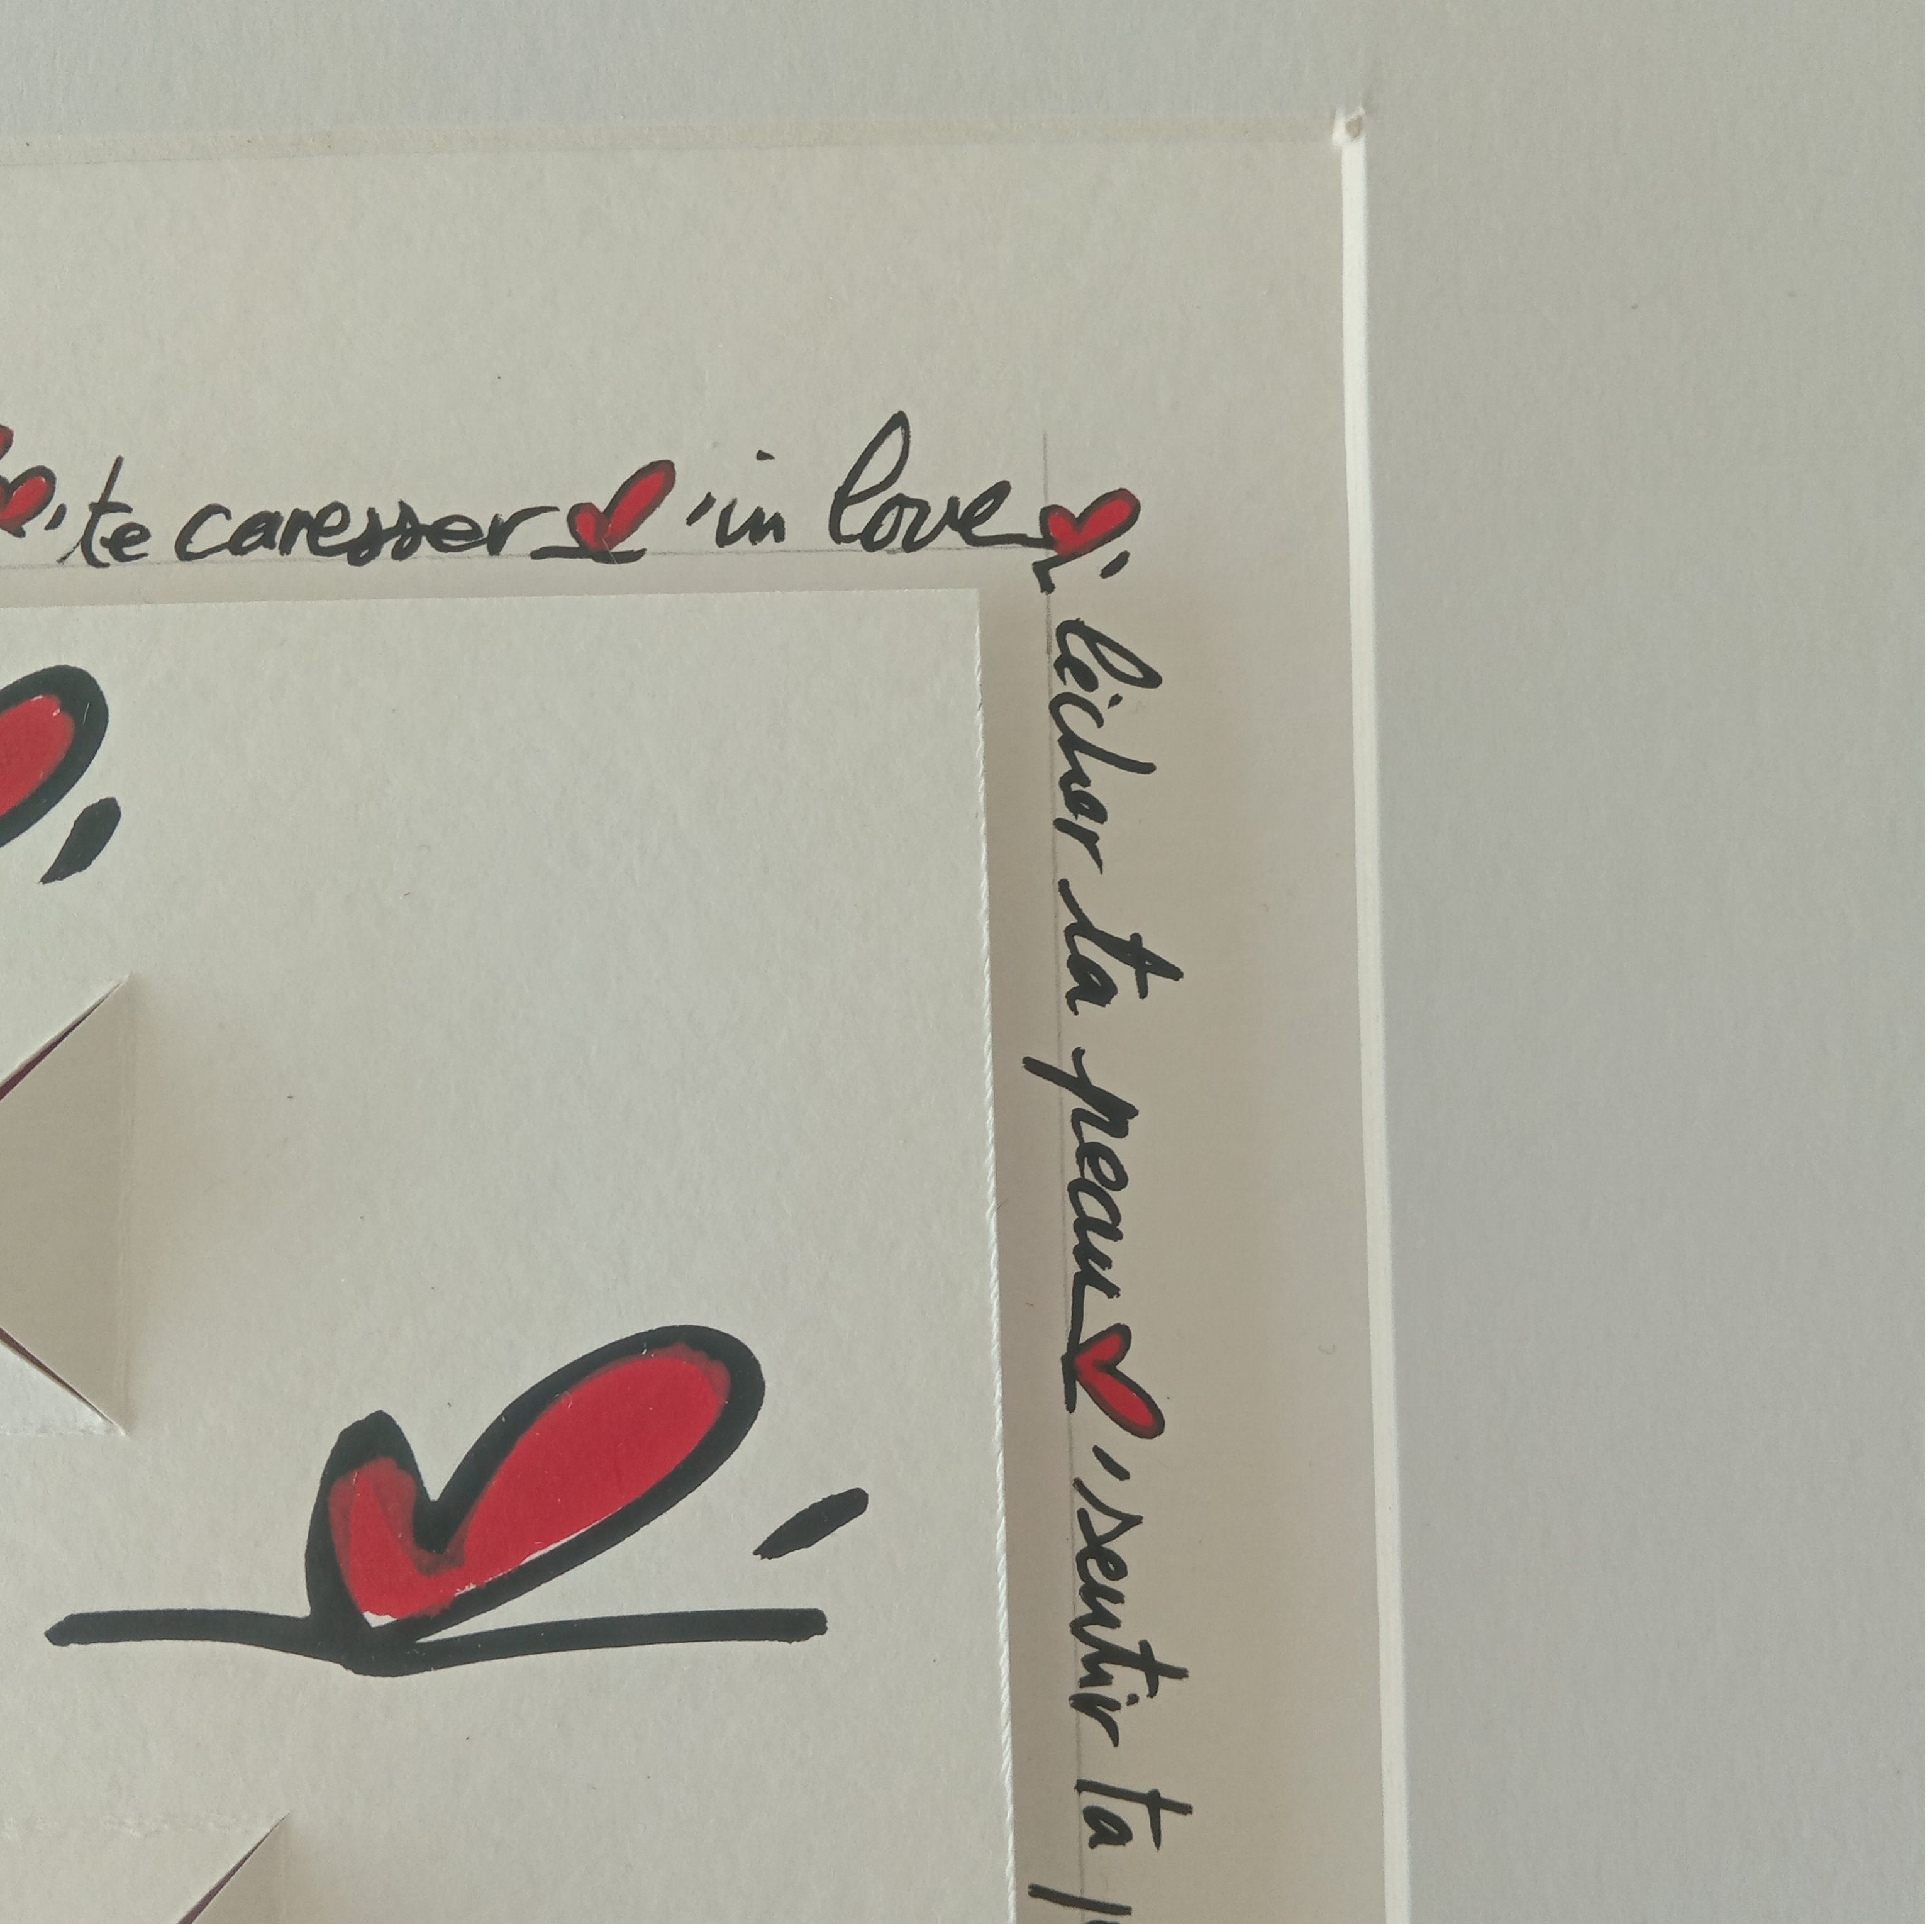 te caresser in love
lécher ta peau sentir ta